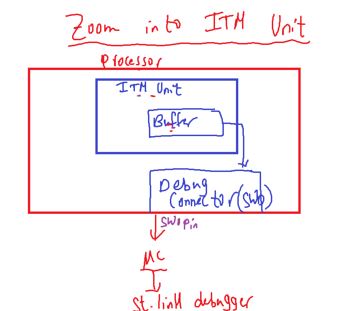 Zoom into ITM Unit
Processor
ITM Unit
Buffer
Debug
Connector(SWD)
SWO pin
MC
St.link debugger